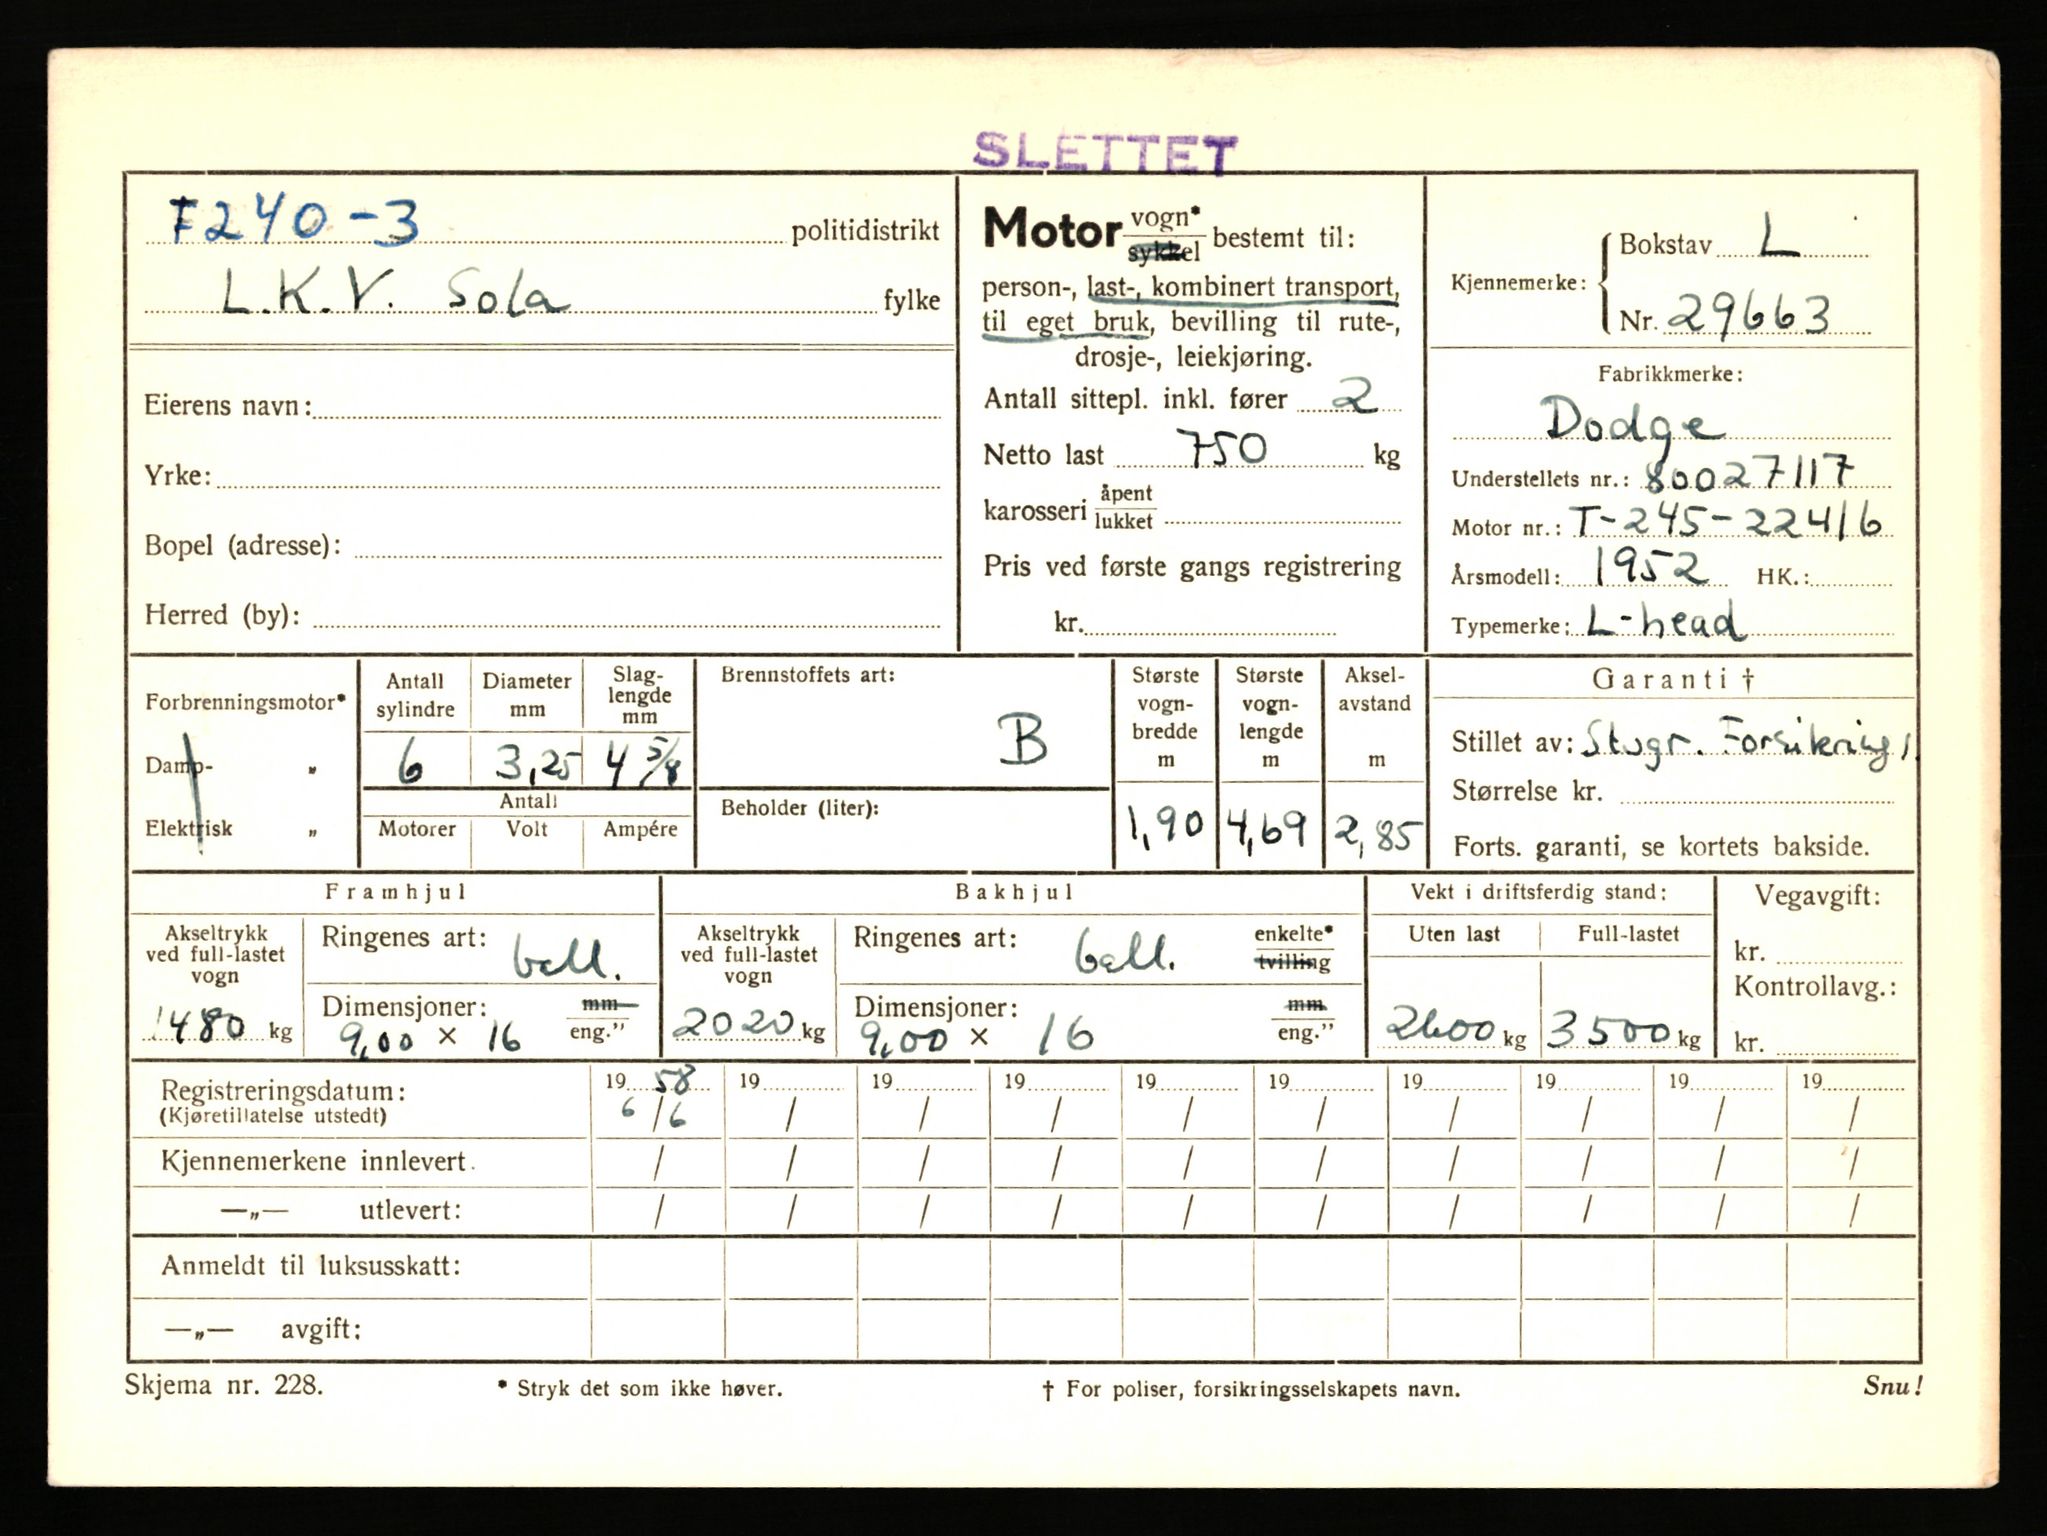 SLETTET
F240-3 politidistrikt
L.K.V. Sola fylke
Eierens navn:
Yrke:
Bopel (adresse):
Herred (by):
Motor vogn* / sykkel bestemt til:
person-, last-, kombinert transport,
til eget bruk, bevilling til rute-,
drosje-, leiekjøring.
Antall sittepl. inkl. fører 2
Netto last 750 kg
karosseri åpent / lukket
Pris ved første gangs registrering
kr.
Kjennemerke: Bokstav L
Nr. 29663
Fabrikkmerke:
Dodge
Understellets nr.: 80027117
Motor nr.: T-245-22416
Årsmodell: 1952 HK.:
Typemerke: L-head
Forbrenningsmotor*
Damp- „
Elektrisk „
Antall sylindre
6
Diameter mm
3,25
Slaglengde mm
4 5/8
Antall
Motorer Volt Ampére
Brennstoffets art:
B
Beholder (liter):
Største vognbredde m
1,90
Største vognlengde m
4,69
Akselavstand m
2,85
Garanti †
Stillet av: Stsgr. Forsikring
Størrelse kr.
Forts. garanti, se kortets bakside.
Framhjul
Akseltrykk ved full-lastet vogn
1480 kg
Ringenes art: ball.
Dimensjoner: mm / eng."
9,00 × 16
Bakhjul
Akseltrykk ved full-lastet vogn
2020 kg
Ringenes art: ball. enkelte* / tvilling
Dimensjoner: mm / eng."
9,00 × 16
Vekt i driftsferdig stand:
Uten last Full-lastet
2600 kg 3500 kg
Vegavgift:
kr.
Kontrollavg.:
kr.
Registreringsdatum: 19 58 19 19 19 19 19 19 19 19 19
(Kjøretillatelse utstedt) 6/6 / / / / / / / / /
Kjennemerkene innlevert. / / / / / / / / / /
—„— utlevert: / / / / / / / / / /
Anmeldt til luksusskatt:
—„— avgift:
Skjema nr. 228. * Stryk det som ikke høver. † For poliser, forsikringsselskapets navn. Snu!